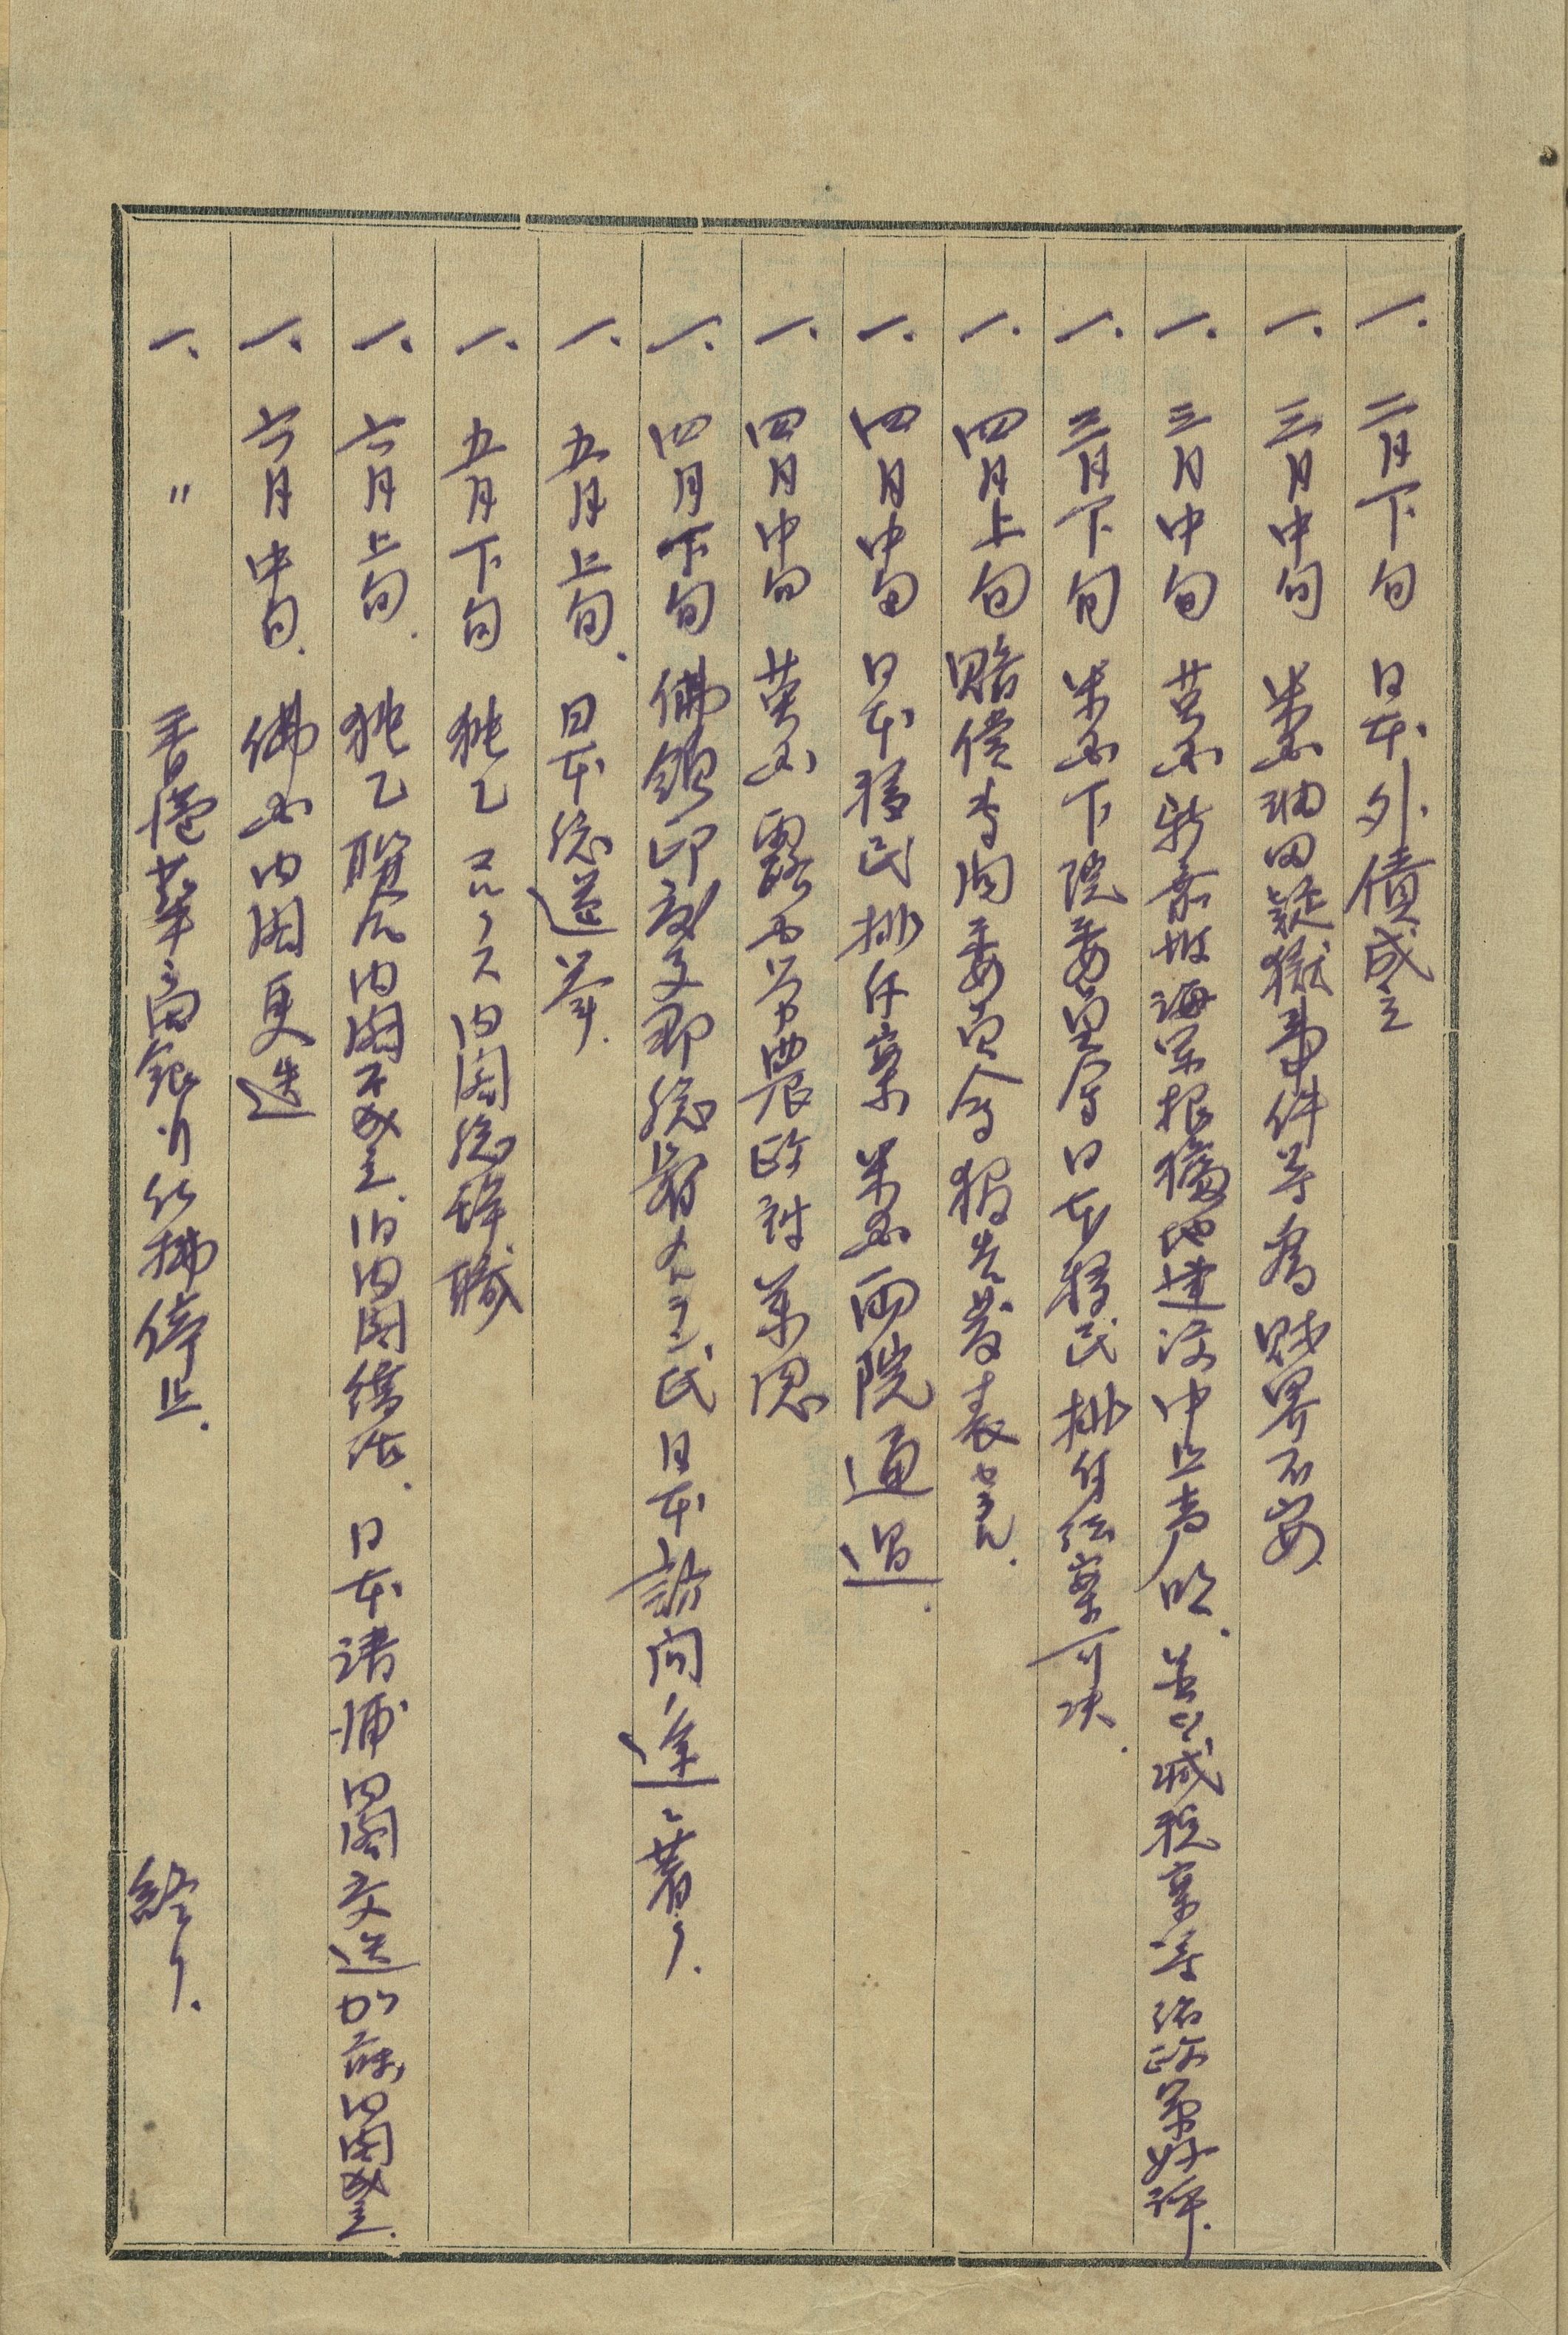 一、二月下旬 日本外債成立
一、三月中旬 米国油田疑獄事件等為財界不安
一、三月中旬 英国新嘉坡海軍根拠地建設中止声明. 並ニ減税案等治政為好評.
一、三月下旬 米国下院委員会日本移民排斥法案可決.
一、四月上旬 賠償専門委員会報告発表サル.
一、四月中旬 日本移民排斥案米国両院通過.
一、四月中旬 英国露西労農政府承認
一、四月下旬 佛領印度支那総督メルラン氏日本訪問ノ途ニ著ク.
一、五月上旬. 日本総選挙.
一、五月下旬 独乙マルクス内閣総辞職
一、六月上旬. 独乙聯合内閣不成立、旧内閣復活. 日本清浦内閣交迭加藤内閣成立.
一、六月中旬. 佛国内閣更迭
一、〃 香港華商銀行仕拂停止.
終リ.